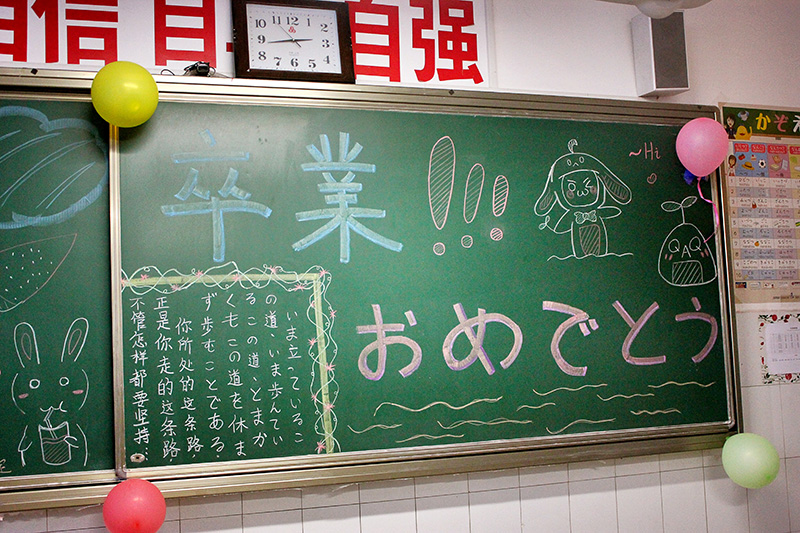 自信 自 自强
卒業!!!
~Hi
QAQ
おめでとう
いま立っているこ
の道、いま歩んでい
るこの道、とまか
くもこの道を休ま
ず歩むことである.
你所处的这条路
正是你走的这条路,
不管怎样都要坚持…
かぞえ